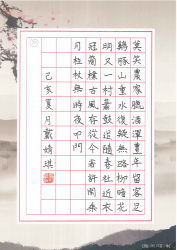 莫笑農家臘酒渾豐年留客足
鷄豚山重水複疑無路柳暗花
明又一村簫鼓追隨春社近衣
冠簡樸古風存從今若許閒乘
月拄杖無時夜叩門
己亥夏月戴靖琪